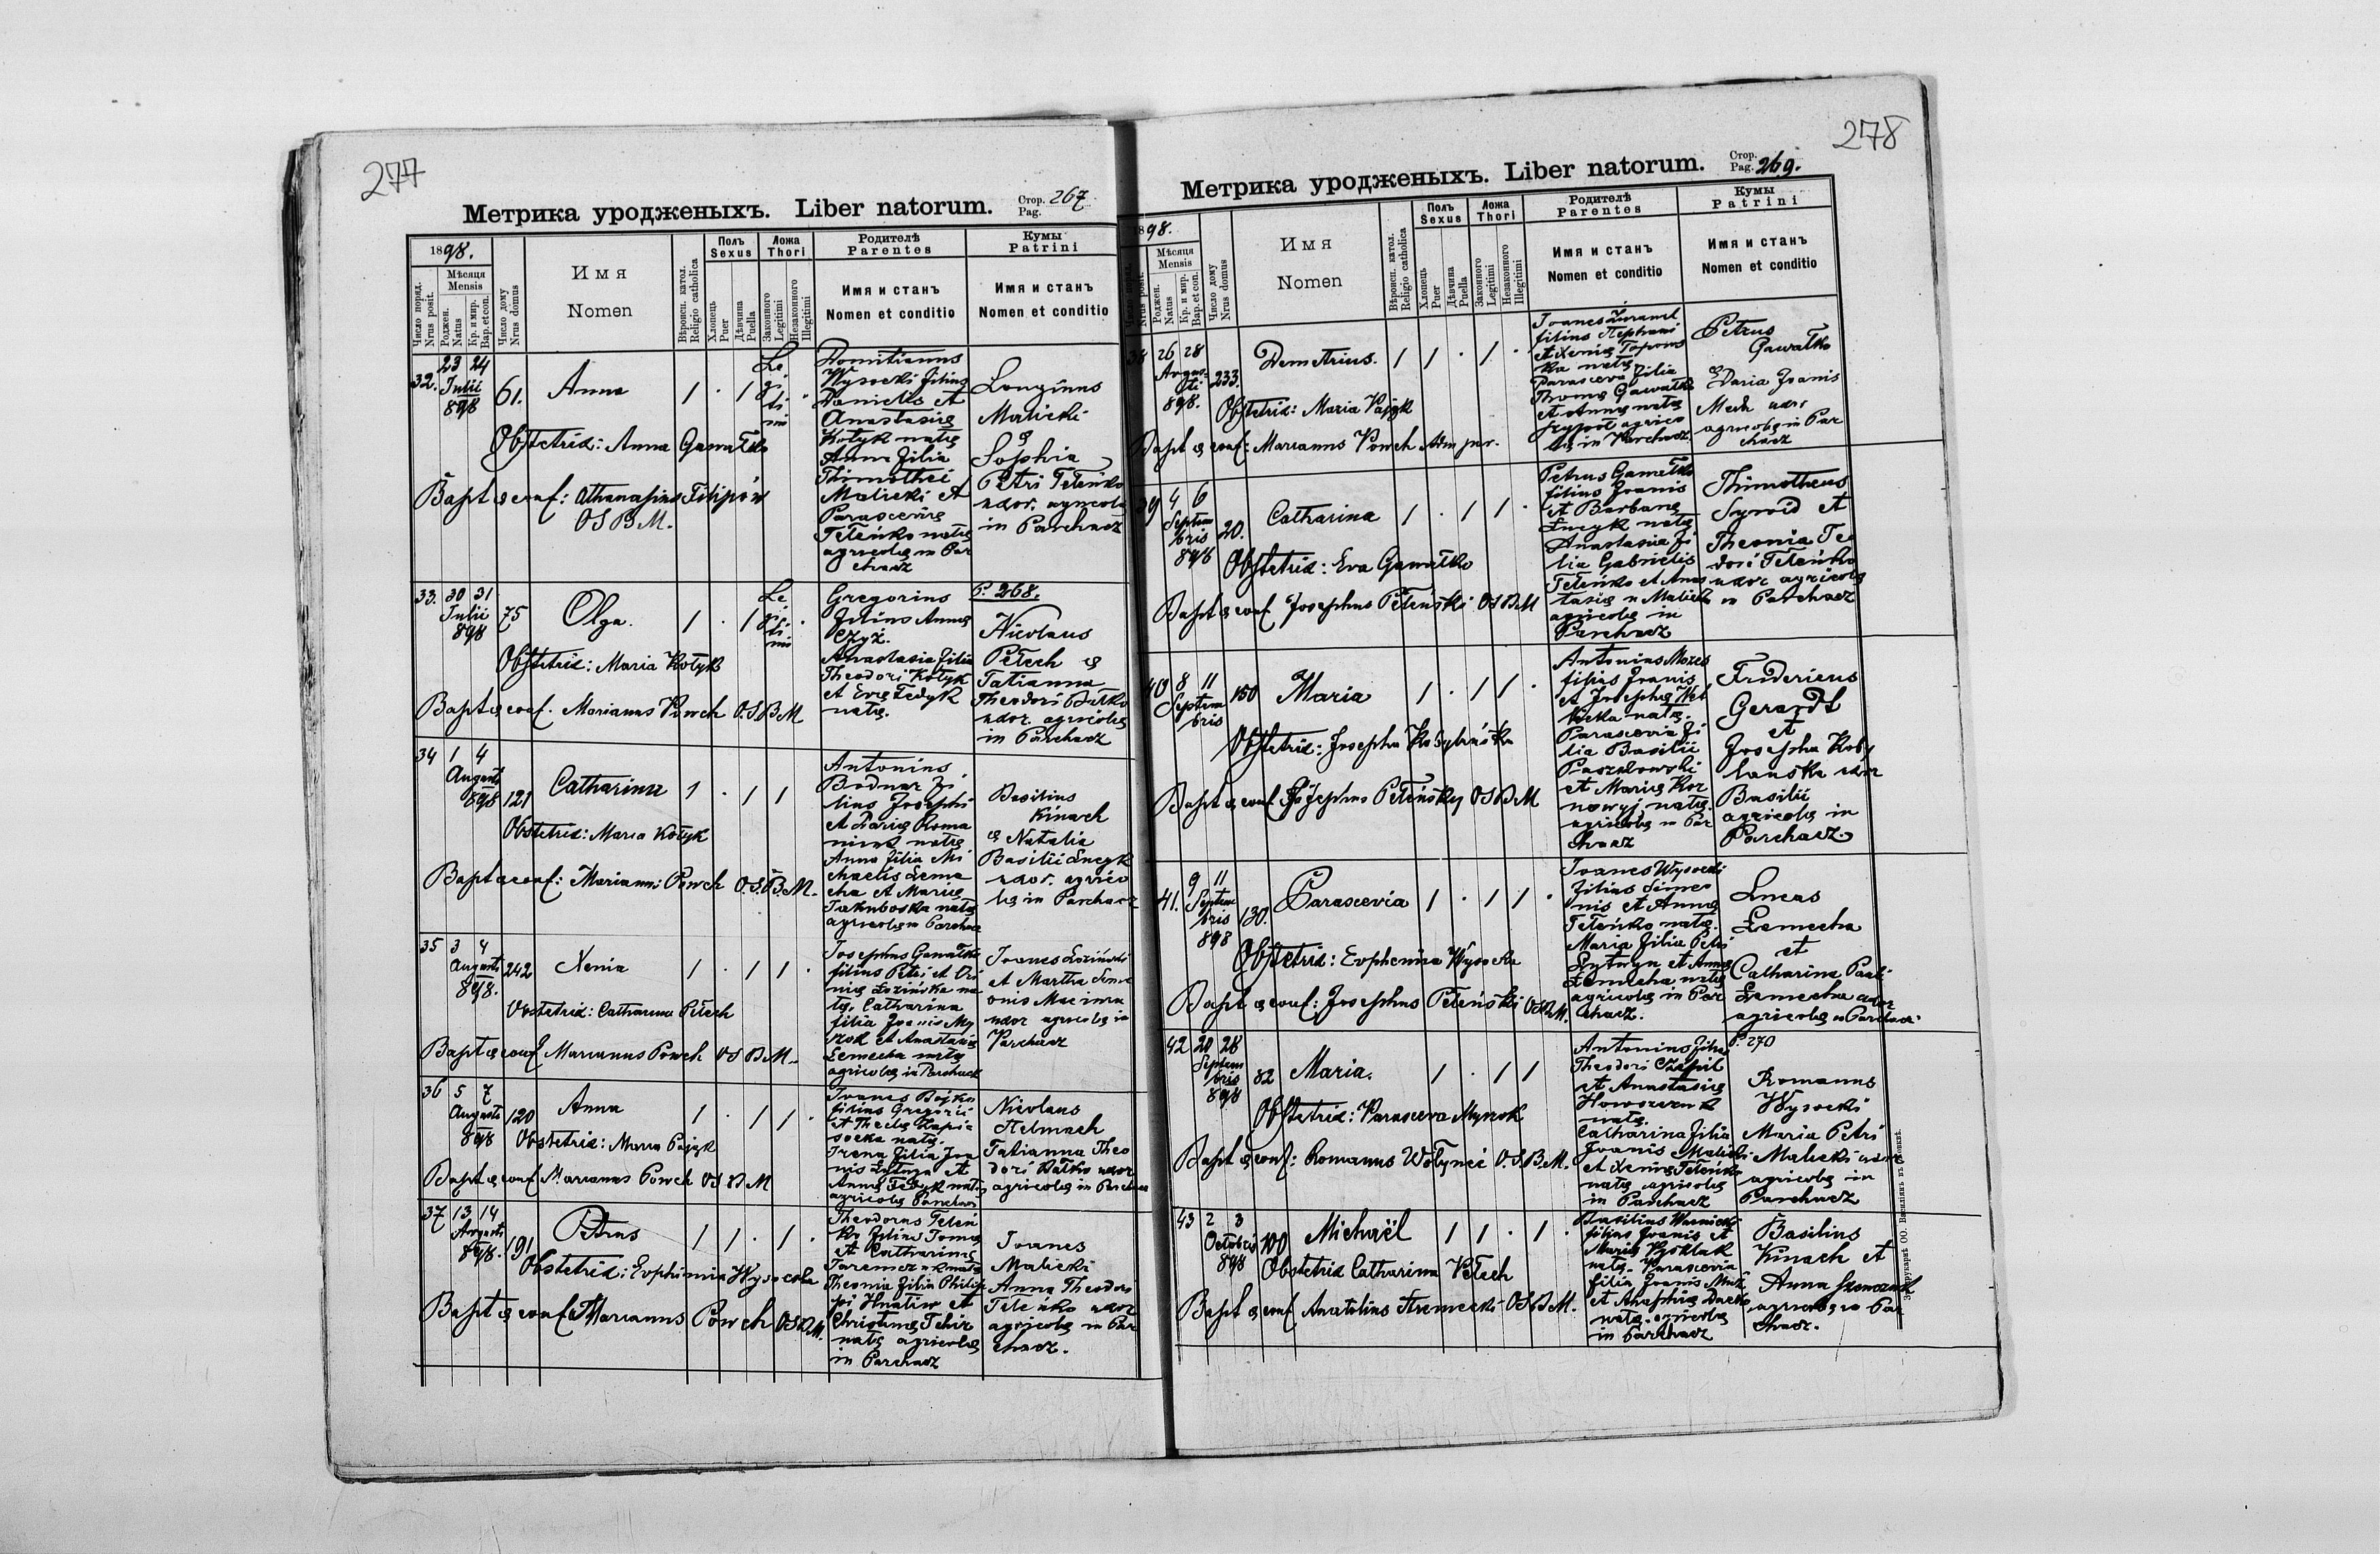 277
Метрика уродженыхъ. Liber natorum.
Стор.
Pag. 267
1898.
Число поряд.
Nrus posit.
Мѣсяця
Mensis
Роджен.
Natus
Кр. и мир.
Bap. et con.
Число дому
Nrus domus
Имя
Nomen
Вѣроисп. катол.
Religio catholica
Полъ
Sexus
Хлопець
Puer
Дѣвчина
Puella
Ложа
Thori
Законного
Legitimi
Незаконного
Illegitimi
Родителѣ
Parentes
Имя и станъ
Nomen et conditio
Кумы
Patrini
Имя и станъ
Nomen et conditio
32.
23 24
Julii
898
61.
Anna
1 · 1
Le
gi
ti
mi
Obstetrix: Anna Gawałko
Bapt & conf: Athanasius Filipów
OSBM.
Domitianus
Wysocki filius
Danielis et
Anastasiæ
Kotyk natæ
Anna filia
Thimothei
Malicki et
Parasceviæ
Teleńko natæ
agricolæ in Par
chacz
Longinus
Malicki
&
Sophia
Petri Teleńko
uxor. agricolæ
in Parchacz
33.
30 31
Julii
898
75
Olga.
1 · 1
Le
gi
ti
mi
Obstetrix: Maria Kotyk
Bapt & conf. Marianus Powch O.S.B.M
Gregorius
filius Annæ
Czyż.
Anastasia filia
Theodori Kotyk
et Evæ Fedyk
natæ.
P. 268.
Nicolaus
Petech &
Tatianna
Theodori
uxor. agricolæ
in Parchacz
34
1 4
Augusti
898
121
Catharina
1 · 1 1
Obstetrix: Maria Kotyk
Bapt & conf: Marianus Powch O.S.B.M.
Antonius
Bodnar fi
lius Josephi
et Dariæ Roma
niuk natæ
Anna filia Mi
chaelis Leme
cha et Mariæ
Jakuboska natæ
agricolæ in Parchacz
Basilius
Kinach
& Natalia
Basilii Lucyk
uxor. agrico
læ in Parchacz
35
3 4
Augusti
898.
242
Xenia
1 · 1 1 ·
Obstetrix: Catharina Petech
Bapt & conf Marianus Powch O S B M.
Josephus Gawałko
filius Petri et Iri
niæ Łozińska na
tæ. Catharina
filia Joannis My
szok et Anastasiæ
Lemecha natæ
agricolæ in Parchacz
Joanes Łoziński
et Martha Sime
onis Macimra
uxor agricolæ in
Parchacz
36
5 7
Augusti
898
120
Anna
1 · 1 1 ·
Obstetrix: Maria Pajzk
Bapt & conf Marianus Powch O S B M
Joanes Bojko
filius Gregorii
et Theclæ
natæ.
Irena filia Joa
nis et
Annæ Fedyk natæ
agricolæ Parchacz
Nicolaus
Helmach
Tatianna Theo
dori uxor
agricolæ in Parchacz
37
13 14
Augusti
898.
191
Petrus
1 1 · 1 ·
Obstetrix: Euphimia Wysocka
Bapt & conf Marianus Powch OSBM.
Theodorus Teleń
ko filius Tomæ
et Catharinæ
natæ
Theonia filia Philip
pi Hnatiw et
Christinæ
natæ agricolæ
in Parchacz
Joanes
Malicki
Anna Theodori
Teleńko uxor
agricolæ in Par
chacz.
278
Метрика уродженыхъ. Liber natorum.
Стор.
Pag. 269.
1898.
Мѣсяця
Mensis
Роджен.
Natus
Кр. и мир.
Bap. et con.
Число дому
Nrus domus
Имя
Nomen
Вѣроисп. катол.
Religio catholica
Полъ
Sexus
Хлопець
Puer
Дѣвчина
Puella
Ложа
Thori
Законного
Legitimi
Незаконного
Illegitimi
Родителѣ
Parentes
Имя и станъ
Nomen et conditio
Кумы
Patrini
Имя и станъ
Nomen et conditio
38
26 28
Augus-
ti
898.
233.
Demetrius.
1 1 · 1 ·
Obstetrix: Maria Pajzk
Bapt & conf: Marianus Powch Adm par.
Joanes Zurawel
filius Stephani
et Xeniæ
natæ
Parasceva filia
Thomæ Gawałko
et Annæ natæ
agrico
læ in Parchacz.
Petrus
Gawałko
&
Daria Joanis
uxor
agricolæ in Par
chacz
39
4 6
Septem
bris
898
20.
Catharina
1 · 1 1 ·
Obstetrix: Eva Gawałko
Bapt & conf Josephus Peleński O S B M
Petrus Gawałko
filius Joanis
et Barbaræ
Lucyk natæ
Anastasia fi
lia Gabrielis
Teleńko et Anas
tasiæ n Malicka
agricolæ in
Parchacz
Thimotheus
Syroid et
Theonia Te
dori Teleńko
uxor agricolæ
in Parchacz
40
8 11
Septem
bris
150
Maria
1 · 1 1 ·
Obstetrix: Josepha Kobylańska
Bapt & conf Josephus Peleńsky O S B M
Antonius Mozes
filius Joanis
et Josephæ
natæ.
Parascevia fi
lia Basilii
Paszkowski
et Mariæ Kor
nowyj natæ.
agricolæ in Par
chacz
Fridericus
Gerardt
et
Josepha Koby
lanska uxor
Basilii
agricolæ in
Parchacz
41.
9 11
Septem
bris
898
130.
Parascevia
1 · 1 1 ·
Obstetrix: Euphemia Wysocka
Bapt & conf: Josephus Peleński OSBM.
Joanes Wysocki
filius Simeo
nis et Annæ
Teleńko natæ.
Maria filia Petri
et Annæ
Lemecha natæ
agricolæ in Par
chacz.
Lucas
Lemecha
et
Catharina Pauli
Lemecha uxor
agricolæ in Parchacz
42
20 28
Septem
bris
898
82
Maria.
1 · 1 1
Obstetrix: Parasceva Myszok
Bapt & conf: Romanus Wołyneć O.S.B.M.
Antonius filius
Theodori
et Anastasiæ
natæ.
Catharina filia
Joanis Malicki
et Xeniæ Teleńko
natæ agricolæ
in Parchacz
P. 270
Romanus
Wysocki
Maria Petri
Malicki uxor
agricolæ in
Parchacz
43
2 3
Octobris
898
100
Michaël
1 1 · 1 ·
Obstetrix Catharina Petech
Bapt & conf Anatolius Stremecki O S B M.
Basilius
filius Joanis et
Mariæ
natæ. Parascevia
filia Joanis
et Anaphiæ
natæ. agricolæ
in Parchacz
Basilius
Kinach et
Anna
agricolæ in Par
chacz.